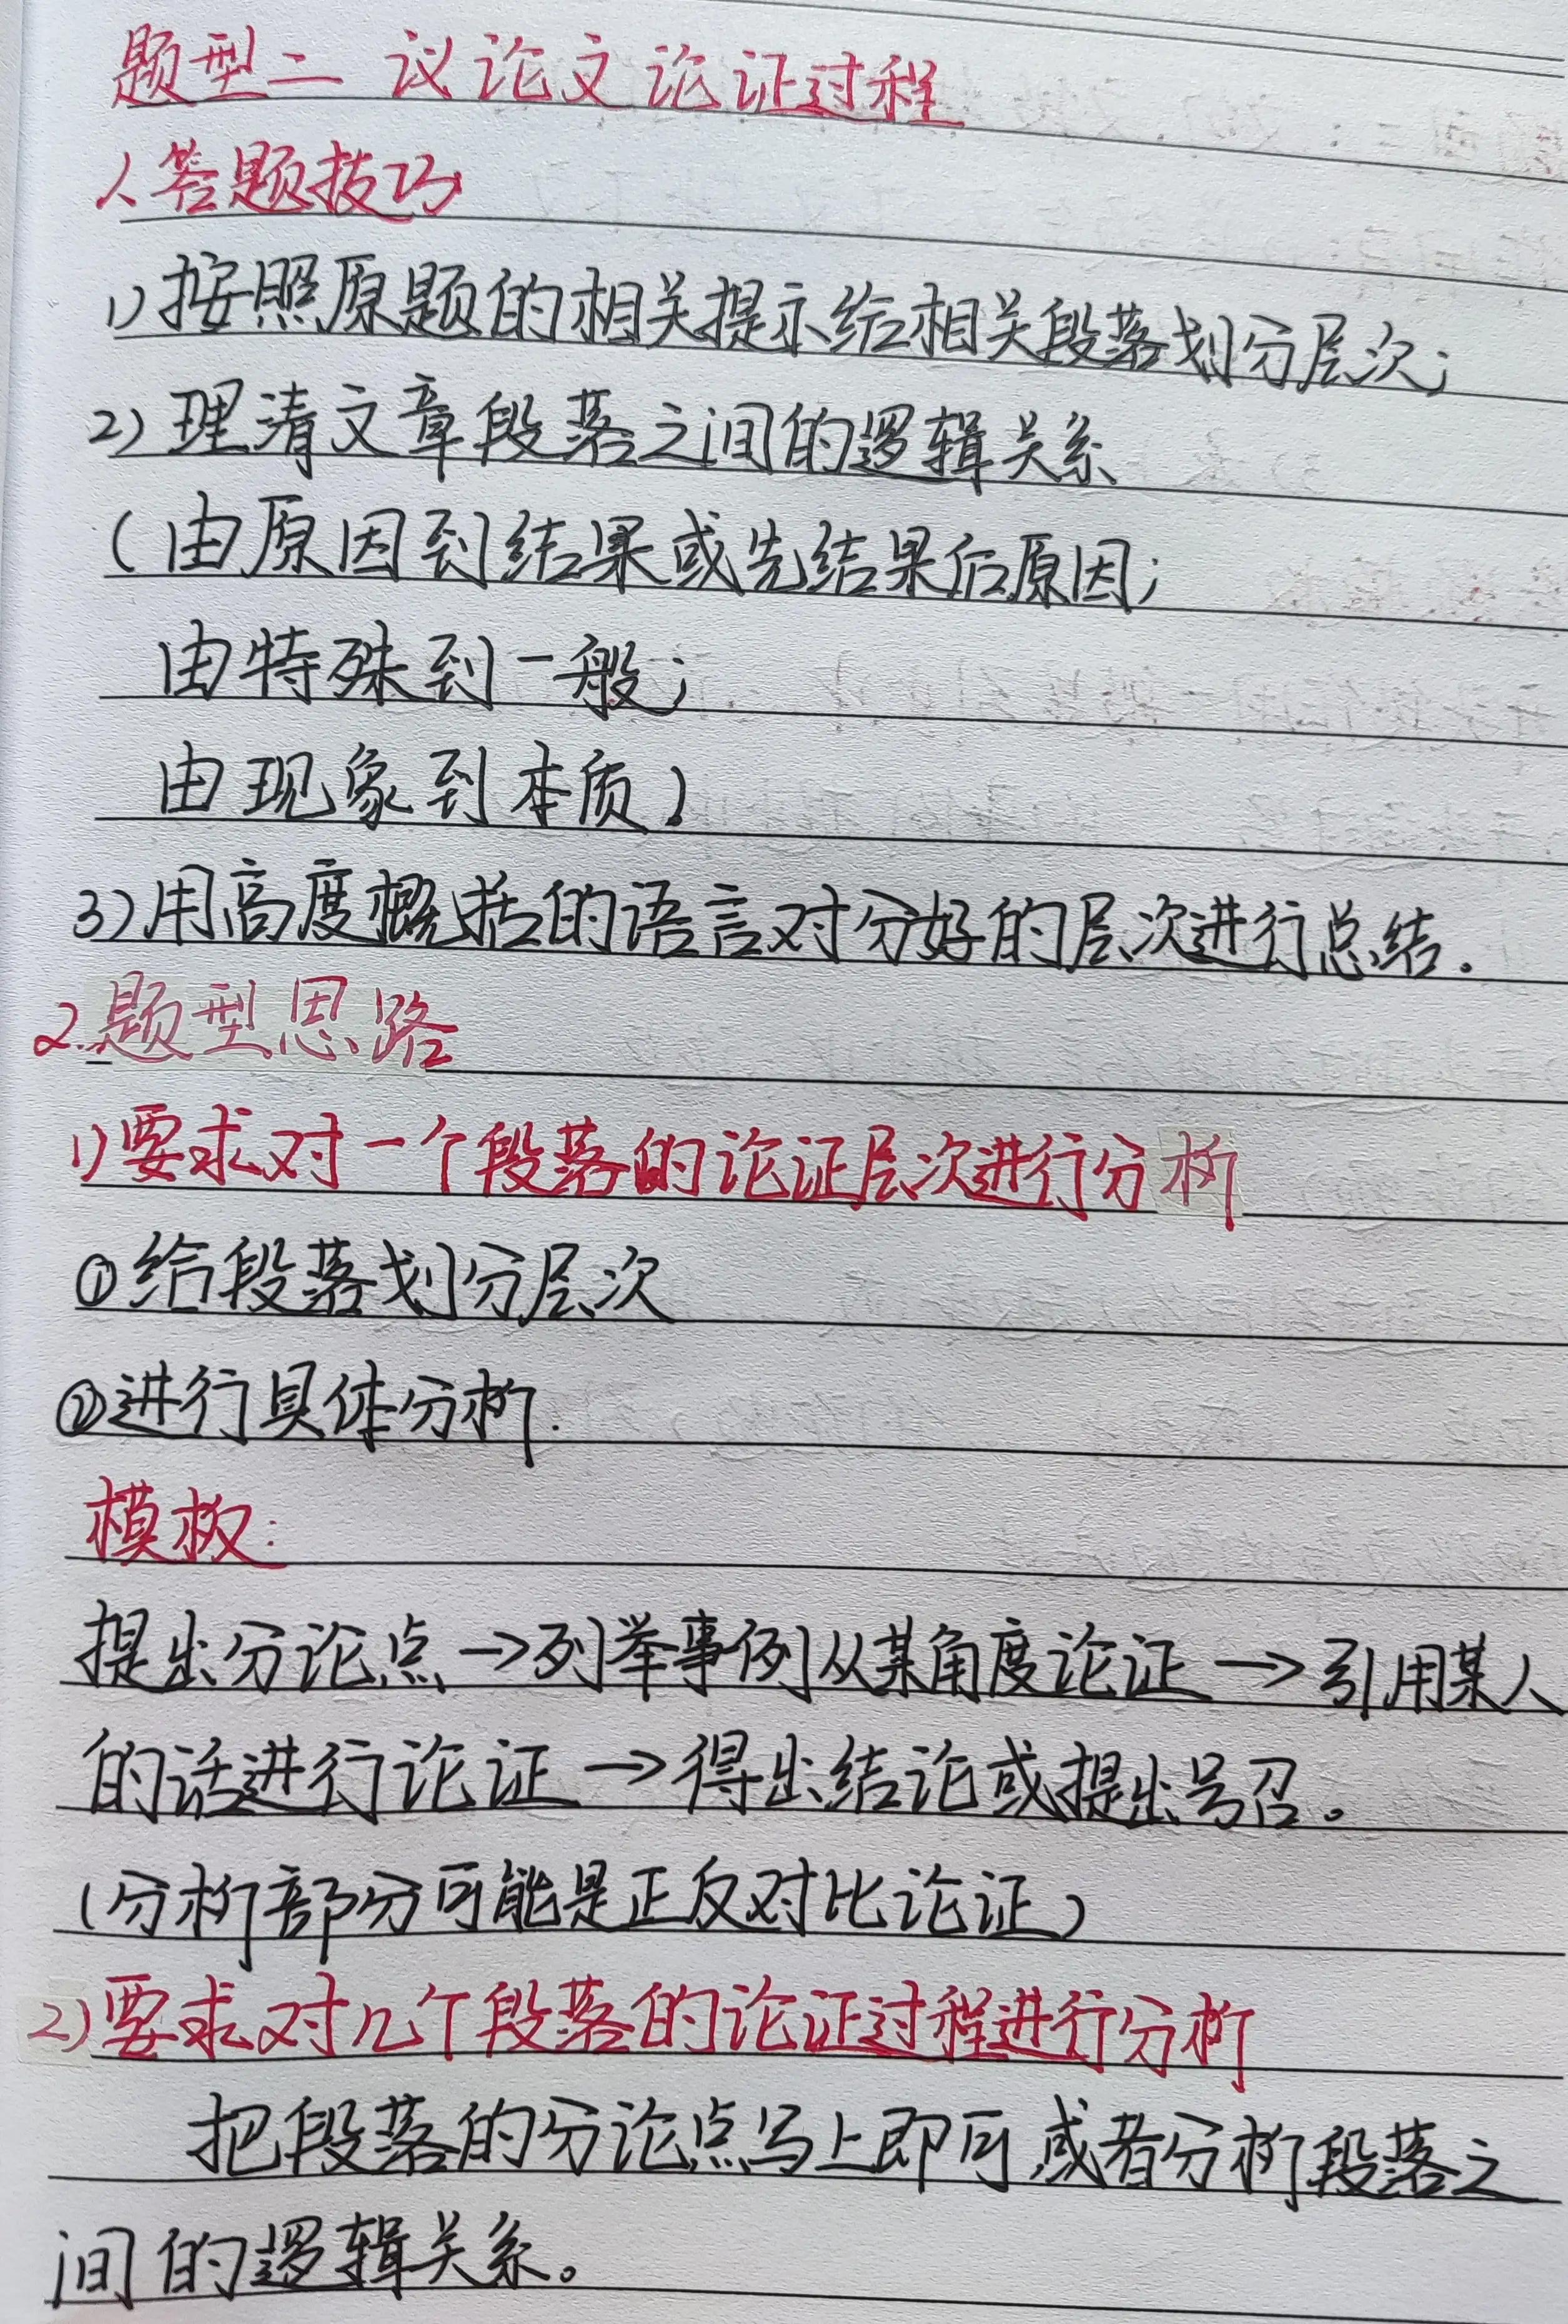 题型二 议论文论证过程
1.答题技巧
1)按照原题的相关提示给相关段落划分层次;
2)理清文章段落之间的逻辑关系
(由原因到结果或先结果后原因;
由特殊到一般;
由现象到本质)
3)用高度概括的语言对分好的层次进行总结.
2.题型思路
1)要求对一个段落的论证层次进行分析
①给段落划分层次
②进行具体分析.
模板:
提出分论点→列举事例从某角度论证→引用某人
的话进行论证→得出结论或提出号召。
(分析部分可能是正反对比论证)
2)要求对几个段落的论证过程进行分析
把段落的分论点写上即可,或者分析段落之
间的逻辑关系。